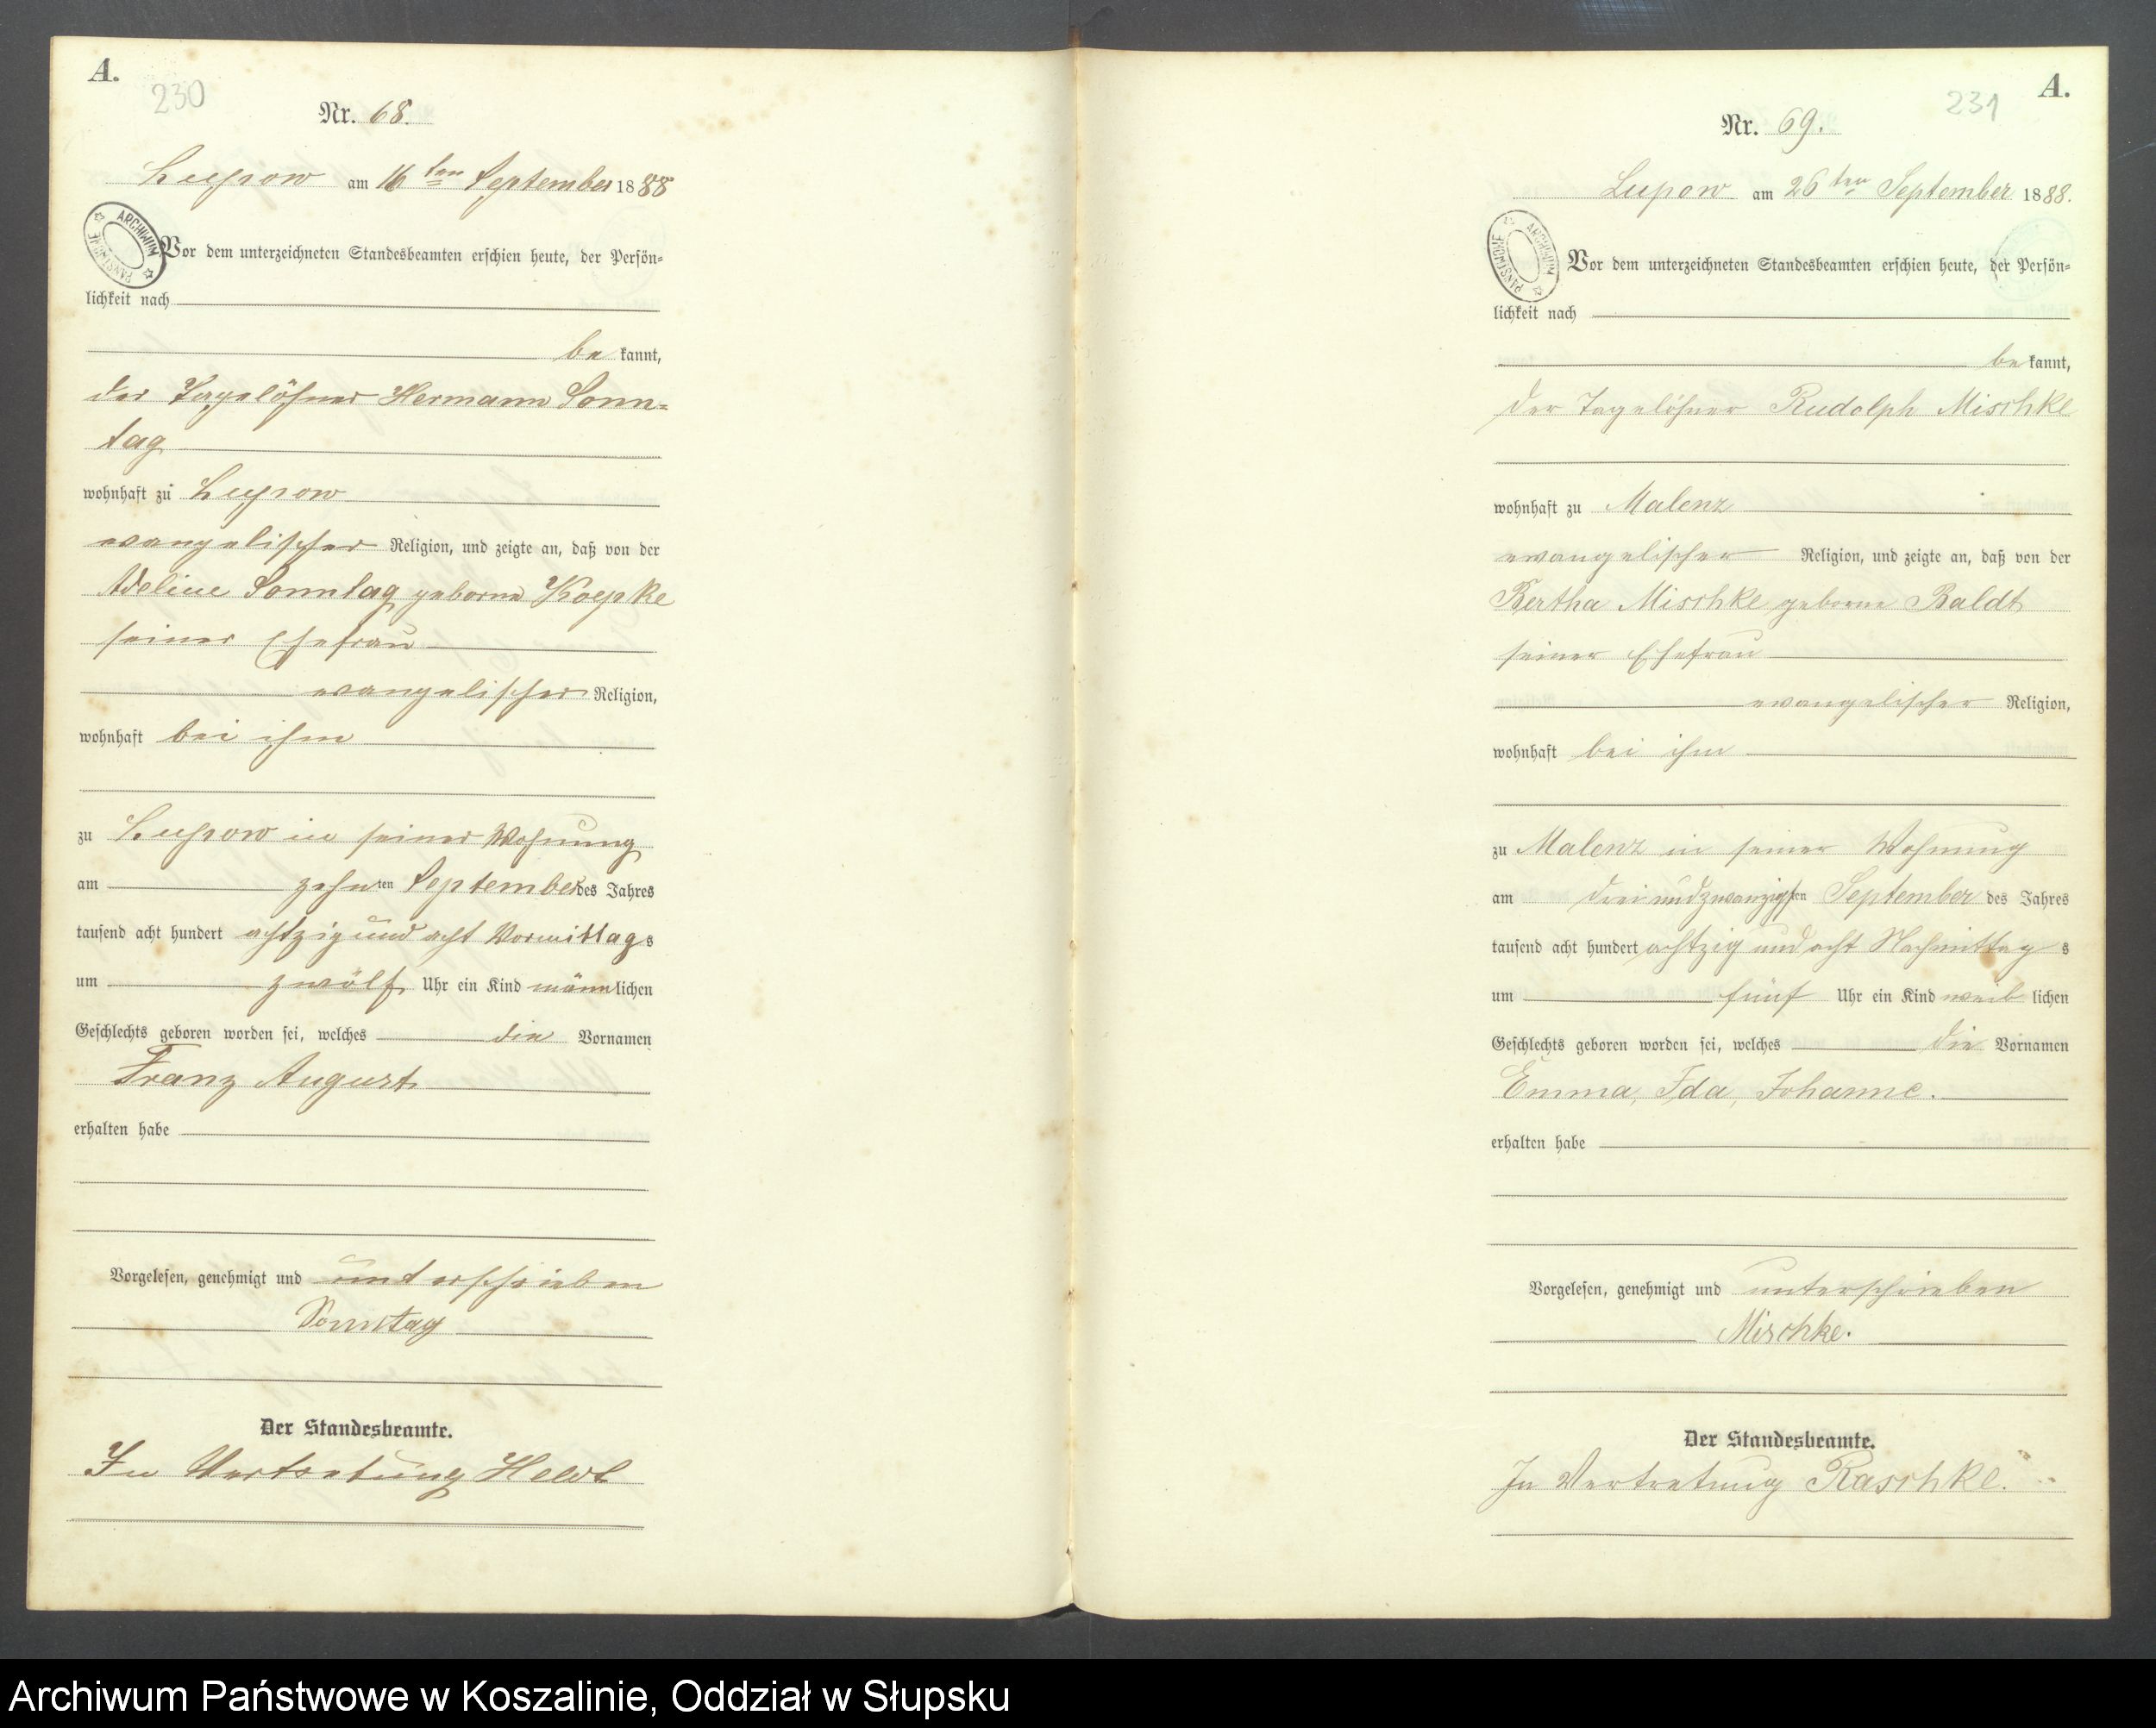 A.
230
Nr. 68.
Lupow am 16ten September 1888
ARCHIWUM PAŃSTWOWE
Vor dem unterzeichneten Standesbeamten erschien heute, der Persön-
lichkeit nach
be kannt,
der Tagelöhner Hermann Sonn-
tag
wohnhaft zu Lupow
evangelischer Religion, und zeigte an, daß von der
Adeline Sonntag geborne Koepke
seiner Ehefrau
evangelischer Religion,
wohnhaft bei ihm
zu Lupow in seiner Wohnung
am zehnten September des Jahres
tausend acht hundert achtzig und acht Vormittags
um zwölf Uhr ein Kind männlichen
Geschlechts geboren worden sei, welches die Vornamen
Franz August
erhalten habe
Vorgelesen, genehmigt und unterschrieben
Sonntag
Der Standesbeamte.
In Vertretung
A.
231
Nr. 69.
Lupow am 26ten September 1888.
ARCHIWUM PAŃSTWOWE
Vor dem unterzeichneten Standesbeamten erschien heute, der Persön-
lichkeit nach
be kannt,
der Tagelöhner Rudolph Mischke
wohnhaft zu Malenz
evangelischer Religion, und zeigte an, daß von der
Bertha Mischke geborne Baldt
seiner Ehefrau
evangelischer Religion,
wohnhaft bei ihm
zu Malenz in seiner Wohnung
am dreiundzwanzigsten September des Jahres
tausend acht hundert achtzig und acht Nachmittag s
um fünf Uhr ein Kind weib lichen
Geschlechts geboren worden sei, welches die Vornamen
Emma, Ida, Johanne.
erhalten habe
Vorgelesen, genehmigt und unterschrieben
Mischke.
Der Standesbeamte.
In Vertretung Raschke.
Archiwum Państwowe w Koszalinie, Oddział w Słupsku